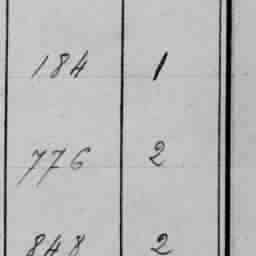 184 1
776 2
848 2